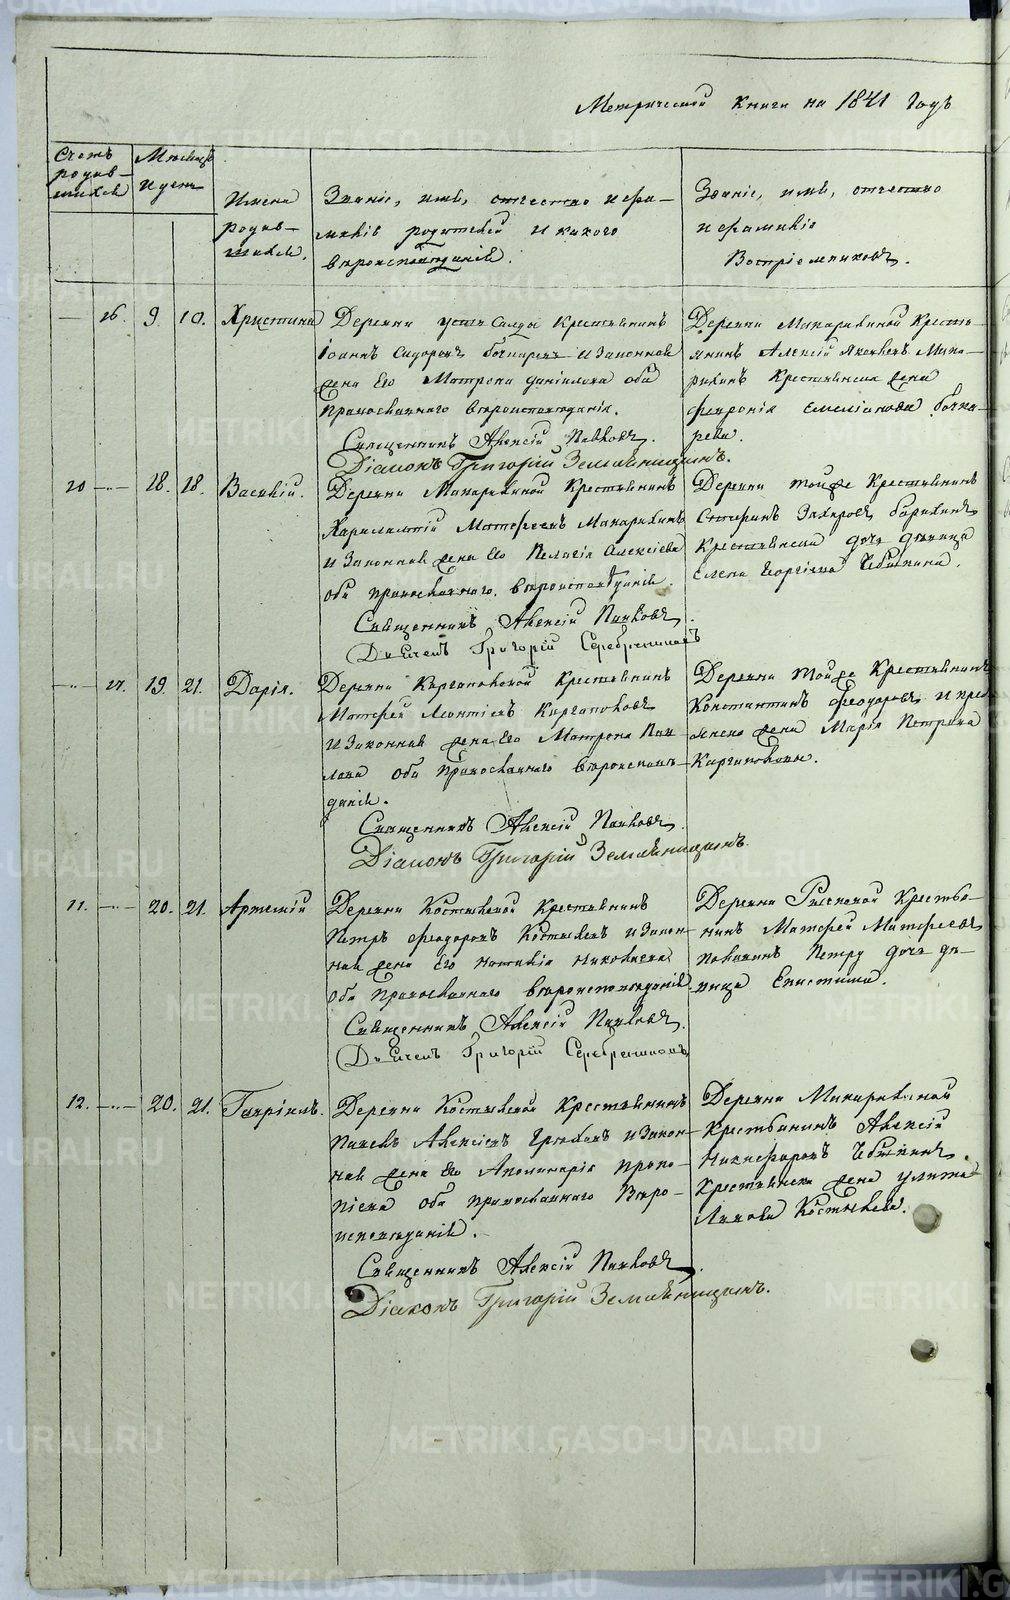 Метрической книги на 1841 годъ
Счетъ родив-шихся
Мѣсяцъ и день
Имена родив-шихся.
Званіе, имя, отчество и фа-
милія родителей и какого
вѣроисповѣданія.
Званіе, имя, отчество
и фамилія
Воспріемниковъ.
26. 9. 10. Христина
Деревни усть Салды Крестьянинъ
Іоаннъ Сидоровъ Бочкаревъ и Законная
жена Его Матрона Даніилова оба
Православнаго вѣроисповѣданія.
Священникъ Алексій Павловъ.
Діаконъ Григорій Земляницынъ.
Деревни Макарихиной Кресть-
янинъ Алексій Яковлевъ Мака-
рихинъ Крестьянская жена
Февронія Емеліанова Бочка-
рева.
10 18. 18. Василій.
Деревни Макарихиной Крестьянинъ
Харлампій Матфеевъ Макарихинъ
и Законная жена Его Пелагія Алексіева
оба православнаго вѣроисповѣданія.
Священникъ Алексій Павловъ.
Дьячекъ Григорій Серебренниковъ
Деревни тойже Крестьянинъ
Стефанъ Захаровъ
Крестьянская дочь дѣвица
Елена Георгіева
27. 19. 21. Дарія.
Деревни Каргаполовой Крестьянинъ
Матфей Леонтіевъ Каргаполовъ
и Законная жена Его Матрона Пав-
лова оба Православнаго вѣроиспов-
данія.
Священникъ Алексій Павловъ.
Діаконъ Григорій Земляницынъ.
Деревни тойже Крестьянинъ
Константинъ Феодоровъ и
жена Марія Петрова
Каргаполовы.
11. 20. 21. Артемій
Деревни Костылевой Крестьянинъ
Петръ Феодоровъ Костылевъ и Закон-
ная жена Его Наталія Николаева
оба Православнаго вѣроисповѣданія.
Священникъ Алексій Павловъ.
Дьячекъ Григорій Серебренниковъ
Деревни Крестья-
нинъ Матфей Матфеевъ
Петру дочь дѣ-
вица Епистимія.
12. 20. 21. Гавріилъ.
Деревни Костылевой Крестьянинъ
Павелъ Алексіевъ и Закон-
ная жена Его Аполинарія Проко-
піева оба православнаго Вѣро-
исповѣданія.
Священникъ Алексій Павловъ.
Діаконъ Григорій Земляницынъ.
Деревни Макарихиной
Крестьянинъ Алексій
Никифоровъ
Крестьянска жена улита
Костылева.